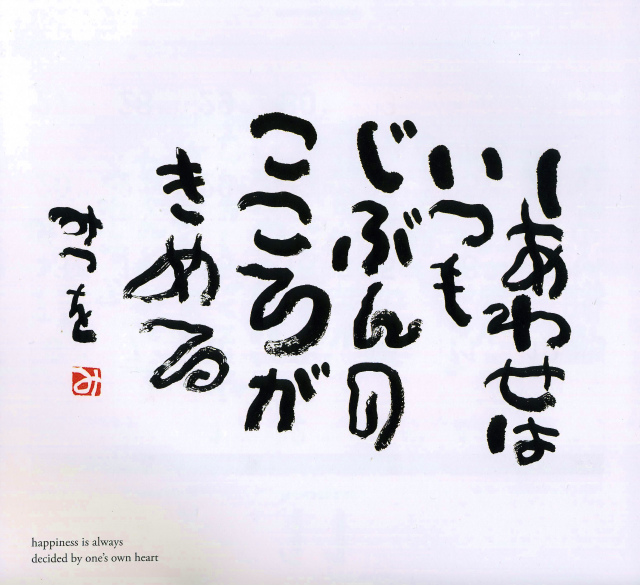 しあわせは
いつも
じぶんの
こころが
きめる
みつを
happiness is always
decided by one's own heart